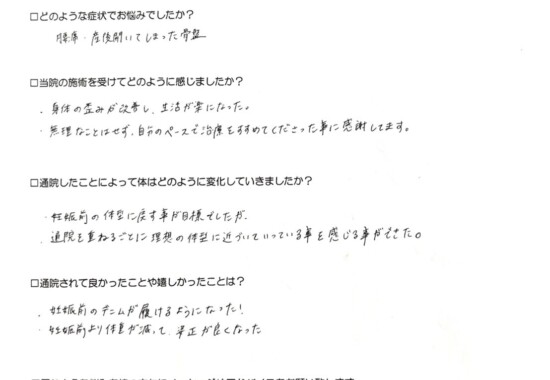 □どのような症状でお悩みでしたか？
腰痛・産後開いてしまった骨盤
□当院の施術を受けてどのように感じましたか？
・身体の歪みが改善し、生活が楽になった。
・無理なことはせず、自分のペースで治療をすすめてくださった事に感謝してます。
□通院したことによって体はどのように変化していきましたか？
・妊娠前の体型に戻す事が目標でしたが、
通院を重ねるごとに理想の体型に近づいていっている事を感じる事ができた。
□通院されて良かったことや嬉しかったことは？
・妊娠前のデニムが履けるようになった！
・妊娠前より体重が減って、半正が良くなった